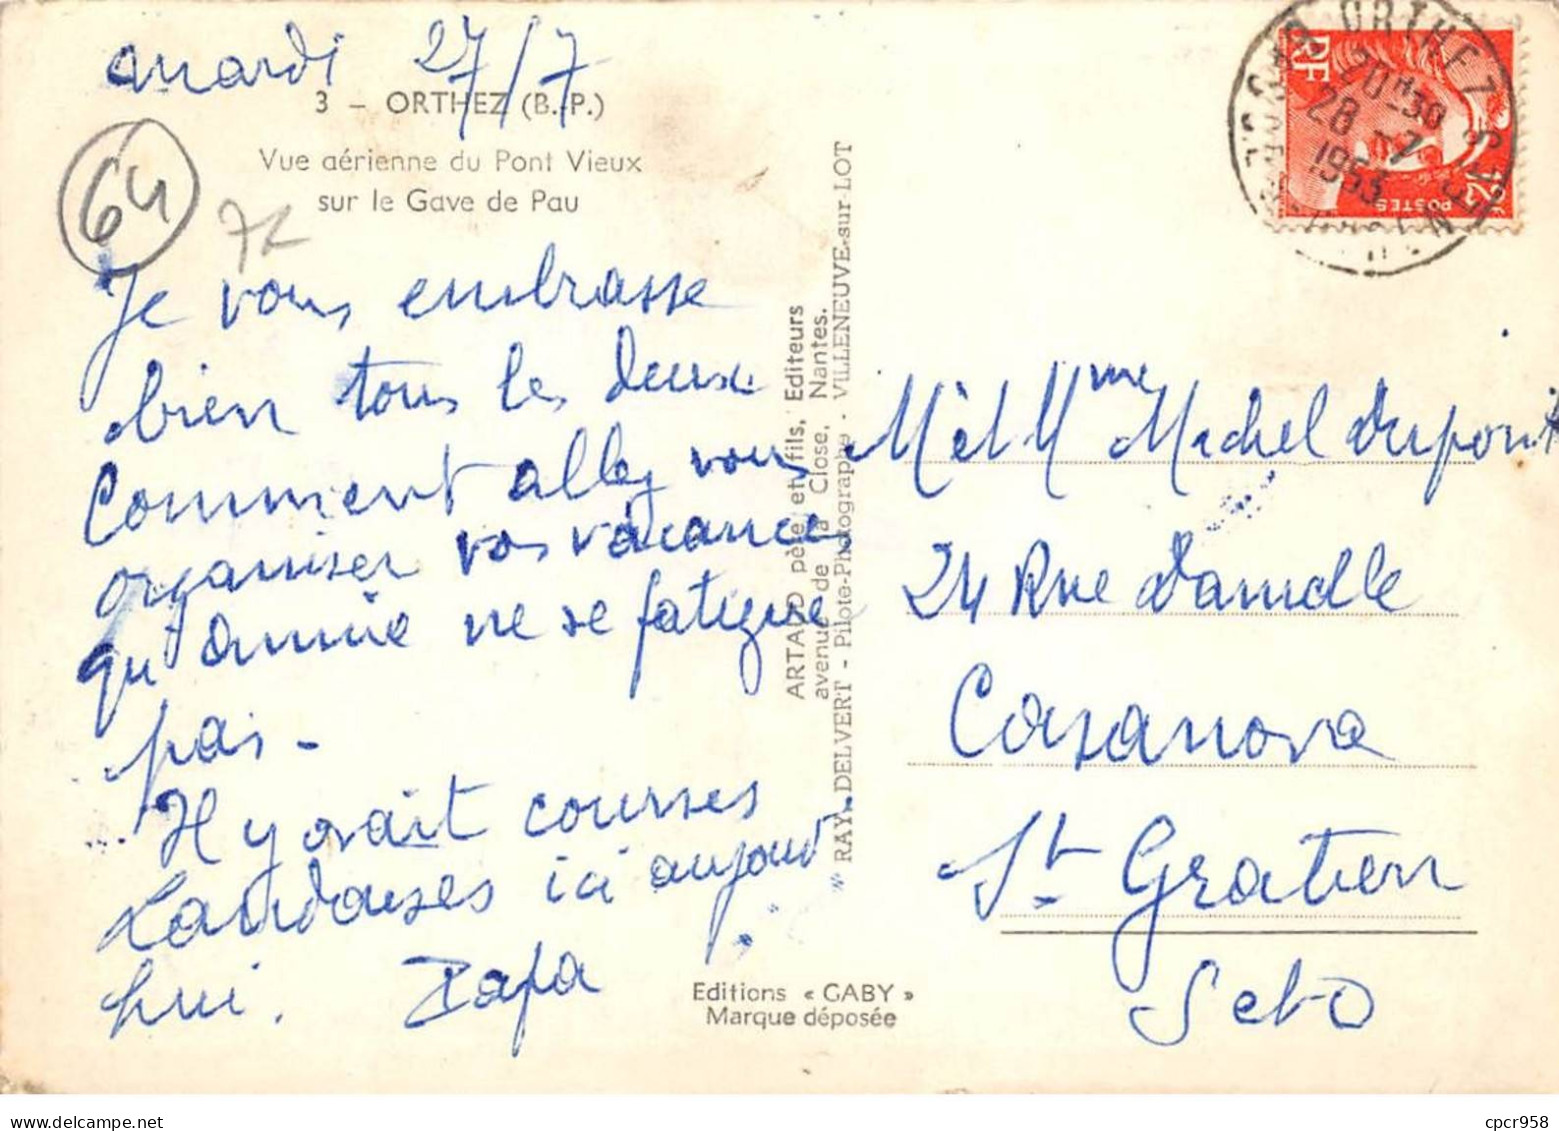 mardi 27/7
3 - ORTHEZ (B.-P.)
Vue aérienne du Pont Vieux
sur le Gave de Pau
64
Je vous embrasse
bien tous les deux
Comment allez vous
organiser vos vacances
qu'Annie ne se fatigue
pas -
Il y avait courses
Landaises ici aujourd'
hui. Papa
ARTAUD père et fils, Editeurs
avenue de la Close, Nantes.
RAY. DELVERT - Pilote-Photographe - VILLENEUVE-sur-LOT
Editions « GABY »
Marque déposée
ORTHEZ
20H30
28 - 7
1953
RF
POSTES
12F
M et Mme Michel Dupont
24 Rue Danielle
Casanova
St Gratien
S et O
cpcr958